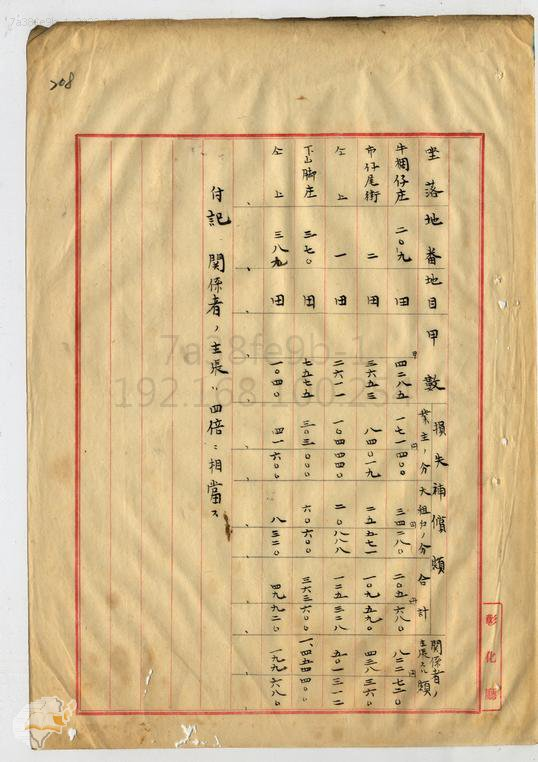 7a38fe9b-1
192.168.100.25
208
坐落 地番 地目 甲數 損失補償額
業主ノ分 大租权ノ分 合計 関係者ノ主張スル額
牛稠仔庄 二〇九 田 四二八五 一七一四〇〇 三四二八〇 二〇五六八〇 八二二七二〇
市仔尾街 二 田 三六五三 八四〇一九 二五五七一 一〇九五九〇 四三八三六〇
仝上 一 田 二六一一 一〇四四四〇 二〇八八八 一二五三二八 五〇一三一二
下山脚庄 三七〇 田 七五七五 三〇三〇〇〇 六〇六〇〇 三六三六〇〇 一、四五四四〇〇
仝上 三八九 田 一〇四〇 四一六〇〇 八三二〇 四九九二〇 一九九六八〇
付記 関係者ノ主張ハ四倍ニ相當ス
彰化廳